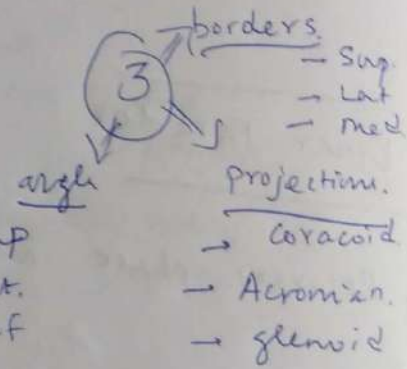 borders.
3
- Sup.
- Lat
- med
angle
projections.
p
→ coracoid
t.
→ Acromian.
f
→ glenoid